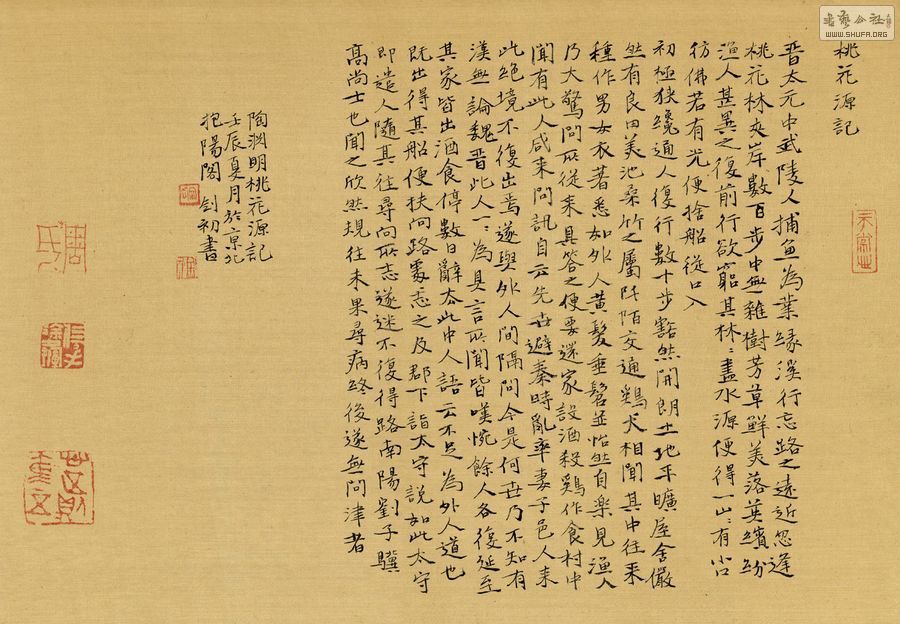 桃花源記
晋太元中武陵人捕魚為業緣溪行忘路之遠近忽逢
桃花林夾岸數百步中無雜樹芳草鮮美落英繽紛
漁人甚異之復前行欲窮其林〻盡水源便得一山〻有小口
彷彿若有光便捨船從口入
初極狹纔通人復行數十步豁然開朗土地平曠屋舍儼
然有良田美池桑竹之屬阡陌交通鷄犬相聞其中往来
種作男女衣著悉如外人黄髮垂髫並怡然自樂見漁人
乃大驚問所從来具答之便要還家設酒殺鷄作食村中
聞有此人咸来問訊自云先世避秦時亂率妻子邑人来
此絶境不復出焉遂與外人間隔問今是何世乃不知有
漢無論魏晋此人一〻為具言所聞皆嘆惋餘人各復延至
其家皆出酒食停數日辭去此中人語云不足為外人道也
既出得其船便扶向路處志之及郡下詣太守説如此太守
即遣人隨其往尋向所志遂迷不復得路南陽劉子驥
高尚士也聞之欣然規往未果尋病終後遂無問津者
陶淵明桃花源記
壬辰夏月於京北
抱陽閣 釗初書
WWW.SHUFA.ORG